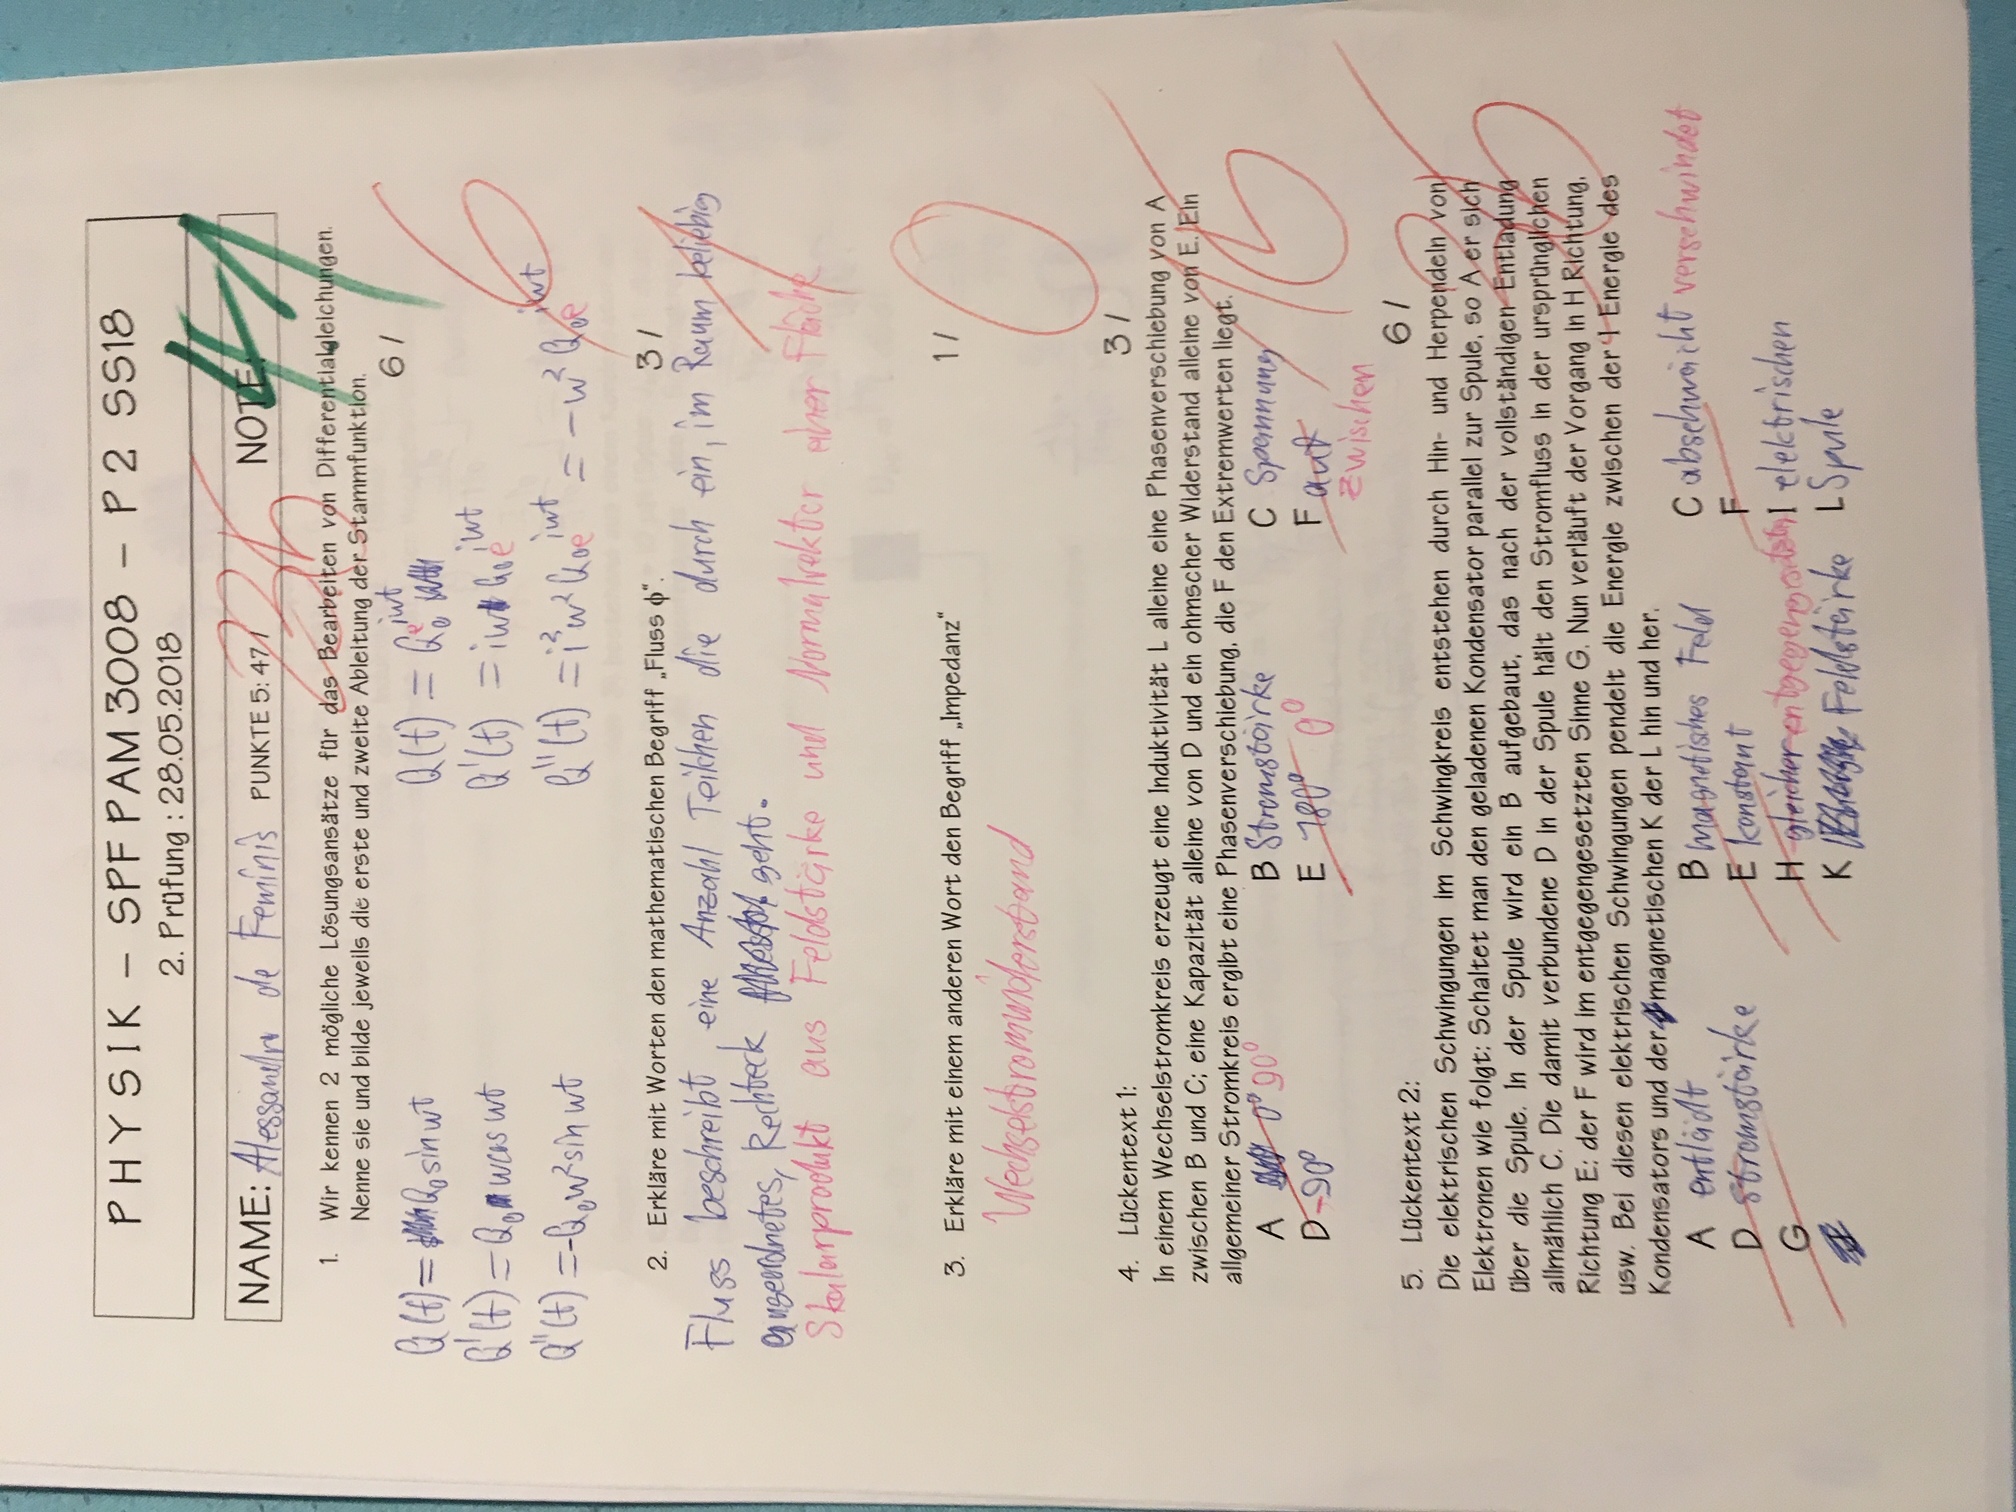 PHYSIK – SPF PAM 3008 – P 2 SS18
2. Prüfung : 28.05.2018
NAME: Alessandro de Feminis PUNKTE 5: 47 / NOTE:
1. Wir kennen 2 mögliche Lösungsansätze für das Bearbeiten von Differentialgleichungen.
Nenne sie und bilde jeweils die erste und zweite Ableitung der Stammfunktion.
6 /
Q(t) = Q₀ sin wt Q(t) = Q₀e^iwt
Q'(t) = Q₀ w cos wt Q'(t) = iw Q₀e^iwt
Q''(t) = -Q₀w² sin wt Q''(t) = i²w² Q₀e^iwt = -w² Q₀e^iwt
6
2. Erkläre mit Worten den mathematischen Begriff „Fluss ϕ“. 3 /
Fluss beschreibt eine Anzahl Teilchen die durch ein, im Raum beliebig
angeordnetes, Rechteck geht.
1
Skalarprodukt aus Feldstärke und Normalvektor einer Fläche
3. Erkläre mit einem anderen Wort den Begriff „Impedanz“ 1 /
0
Wechselstromwiderstand
4. Lückentext 1: 3 /
In einem Wechselstromkreis erzeugt eine Induktivität L alleine eine Phasenverschiebung von A
zwischen B und C; eine Kapazität alleine von D und ein ohmscher Widerstand alleine von E. Ein
allgemeiner Stromkreis ergibt eine Phasenverschiebung, die F den Extremwerten liegt.
A 0° 90° B Stromstärke C Spannung
D -90° E 180° 0° F auf
zwischen
5. Lückentext 2: 6 /
Die elektrischen Schwingungen im Schwingkreis entstehen durch Hin- und Herpendeln von
Elektronen wie folgt: Schaltet man den geladenen Kondensator parallel zur Spule, so A er sich
über die Spule. In der Spule wird ein B aufgebaut, das nach der vollständigen Entladung
allmählich C. Die damit verbundene D in der Spule hält den Stromfluss in der ursprünglichen
Richtung E: der F wird im entgegengesetzten Sinne G. Nun verläuft der Vorgang in H Richtung,
usw. Bei diesen elektrischen Schwingungen pendelt die Energie zwischen der I Energie des
Kondensators und der magnetischen K der L hin und her.
A entlädt B magnetisches Feld C abschwächt verschwindet
D Stromstärke E konstant F
G H gleicher entgegengesetzten I elektrischen
K Feldstärke L Spule